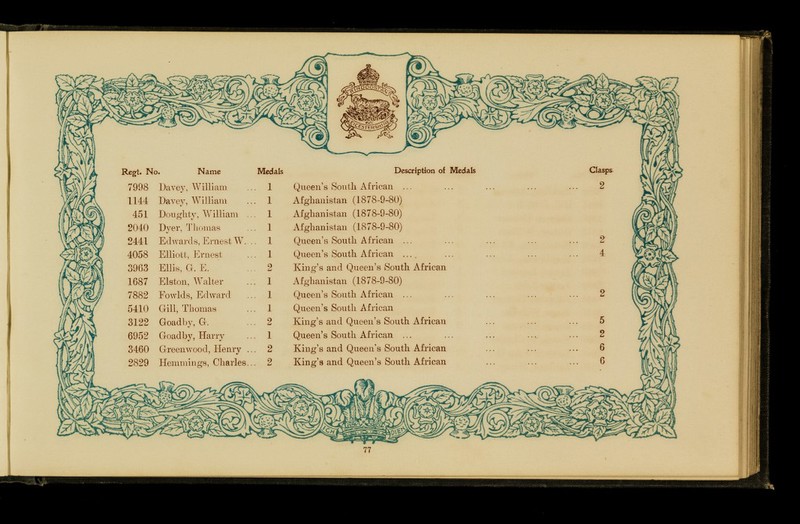 HINDOOSTAN
LEICESTERSHIRE
Regt. No. Name Medals Description of Medals Clasps
7998 Davey, William ... 1 Queen's South African ... ... ... ... ... 2
1144 Davey, William ... 1 Afghanistan (1878-9-80)
451 Doughty, William ... 1 Afghanistan (1878-9-80)
2040 Dyer, Thomas ... 1 Afghanistan (1878-9-80)
2441 Edwards, Ernest W. ... 1 Queen's South African ... ... ... ... ... 2
4058 Elliott, Ernest ... 1 Queen's South African ... ... ... ... ... 4
3963 Ellis, G. E. ... 2 King's and Queen's South African
1687 Elston, Walter ... 1 Afghanistan (1878-9-80)
7882 Fowlds, Edward ... 1 Queen's South African ... ... ... ... ... 2
5410 Gill, Thomas ... 1 Queen's South African
3122 Goadby, G. ... 2 King's and Queen's South African ... ... ... 5
6952 Goadby, Harry ... 1 Queen's South African ... ... ... ... ... 2
3460 Greenwood, Henry ... 2 King's and Queen's South African ... ... ... 6
2829 Hemmings, Charles... 2 King's and Queen's South African ... ... ... 6
77